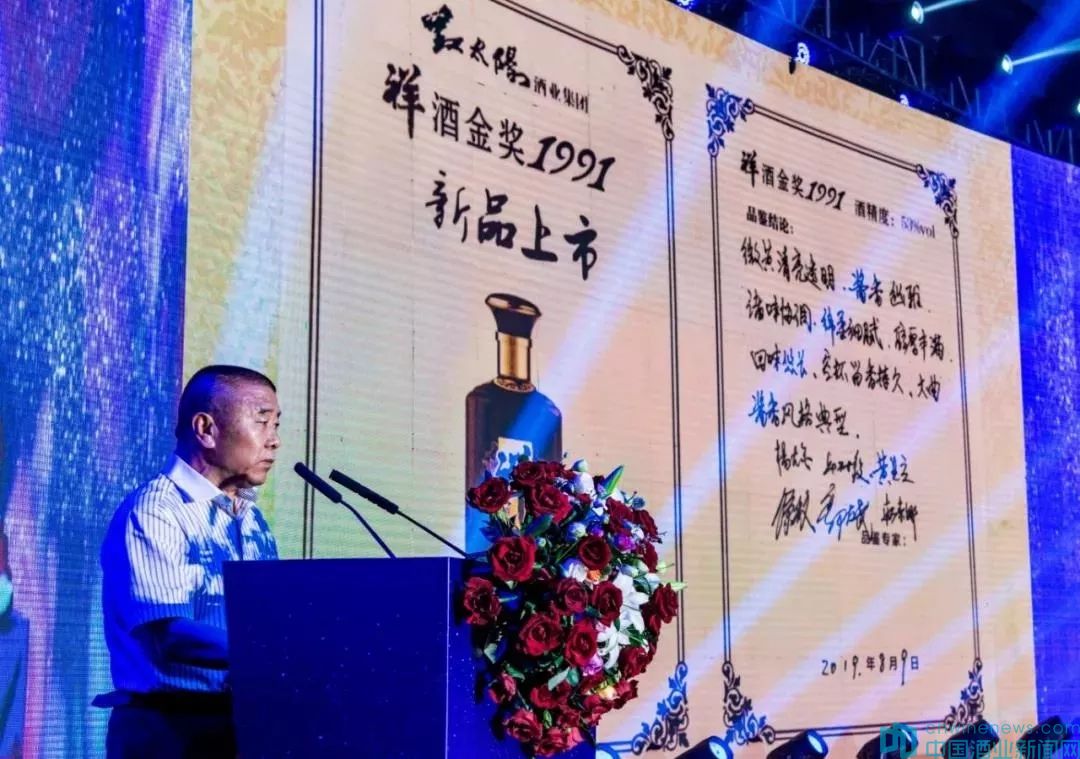 红太陽酒业集团
祥酒金奖1991
新品上市
祥酒金奖1991 酒精度：53%vol
品鉴结论：
微黄清亮透明、酱香幽雅、
诸味协调、绵柔细腻、醇厚丰满、
回味悠长、空杯留香持久、大曲
酱香风格典型。
品鉴专家：
2019.年8月9日
cnwinenews.com
中国酒业新闻网